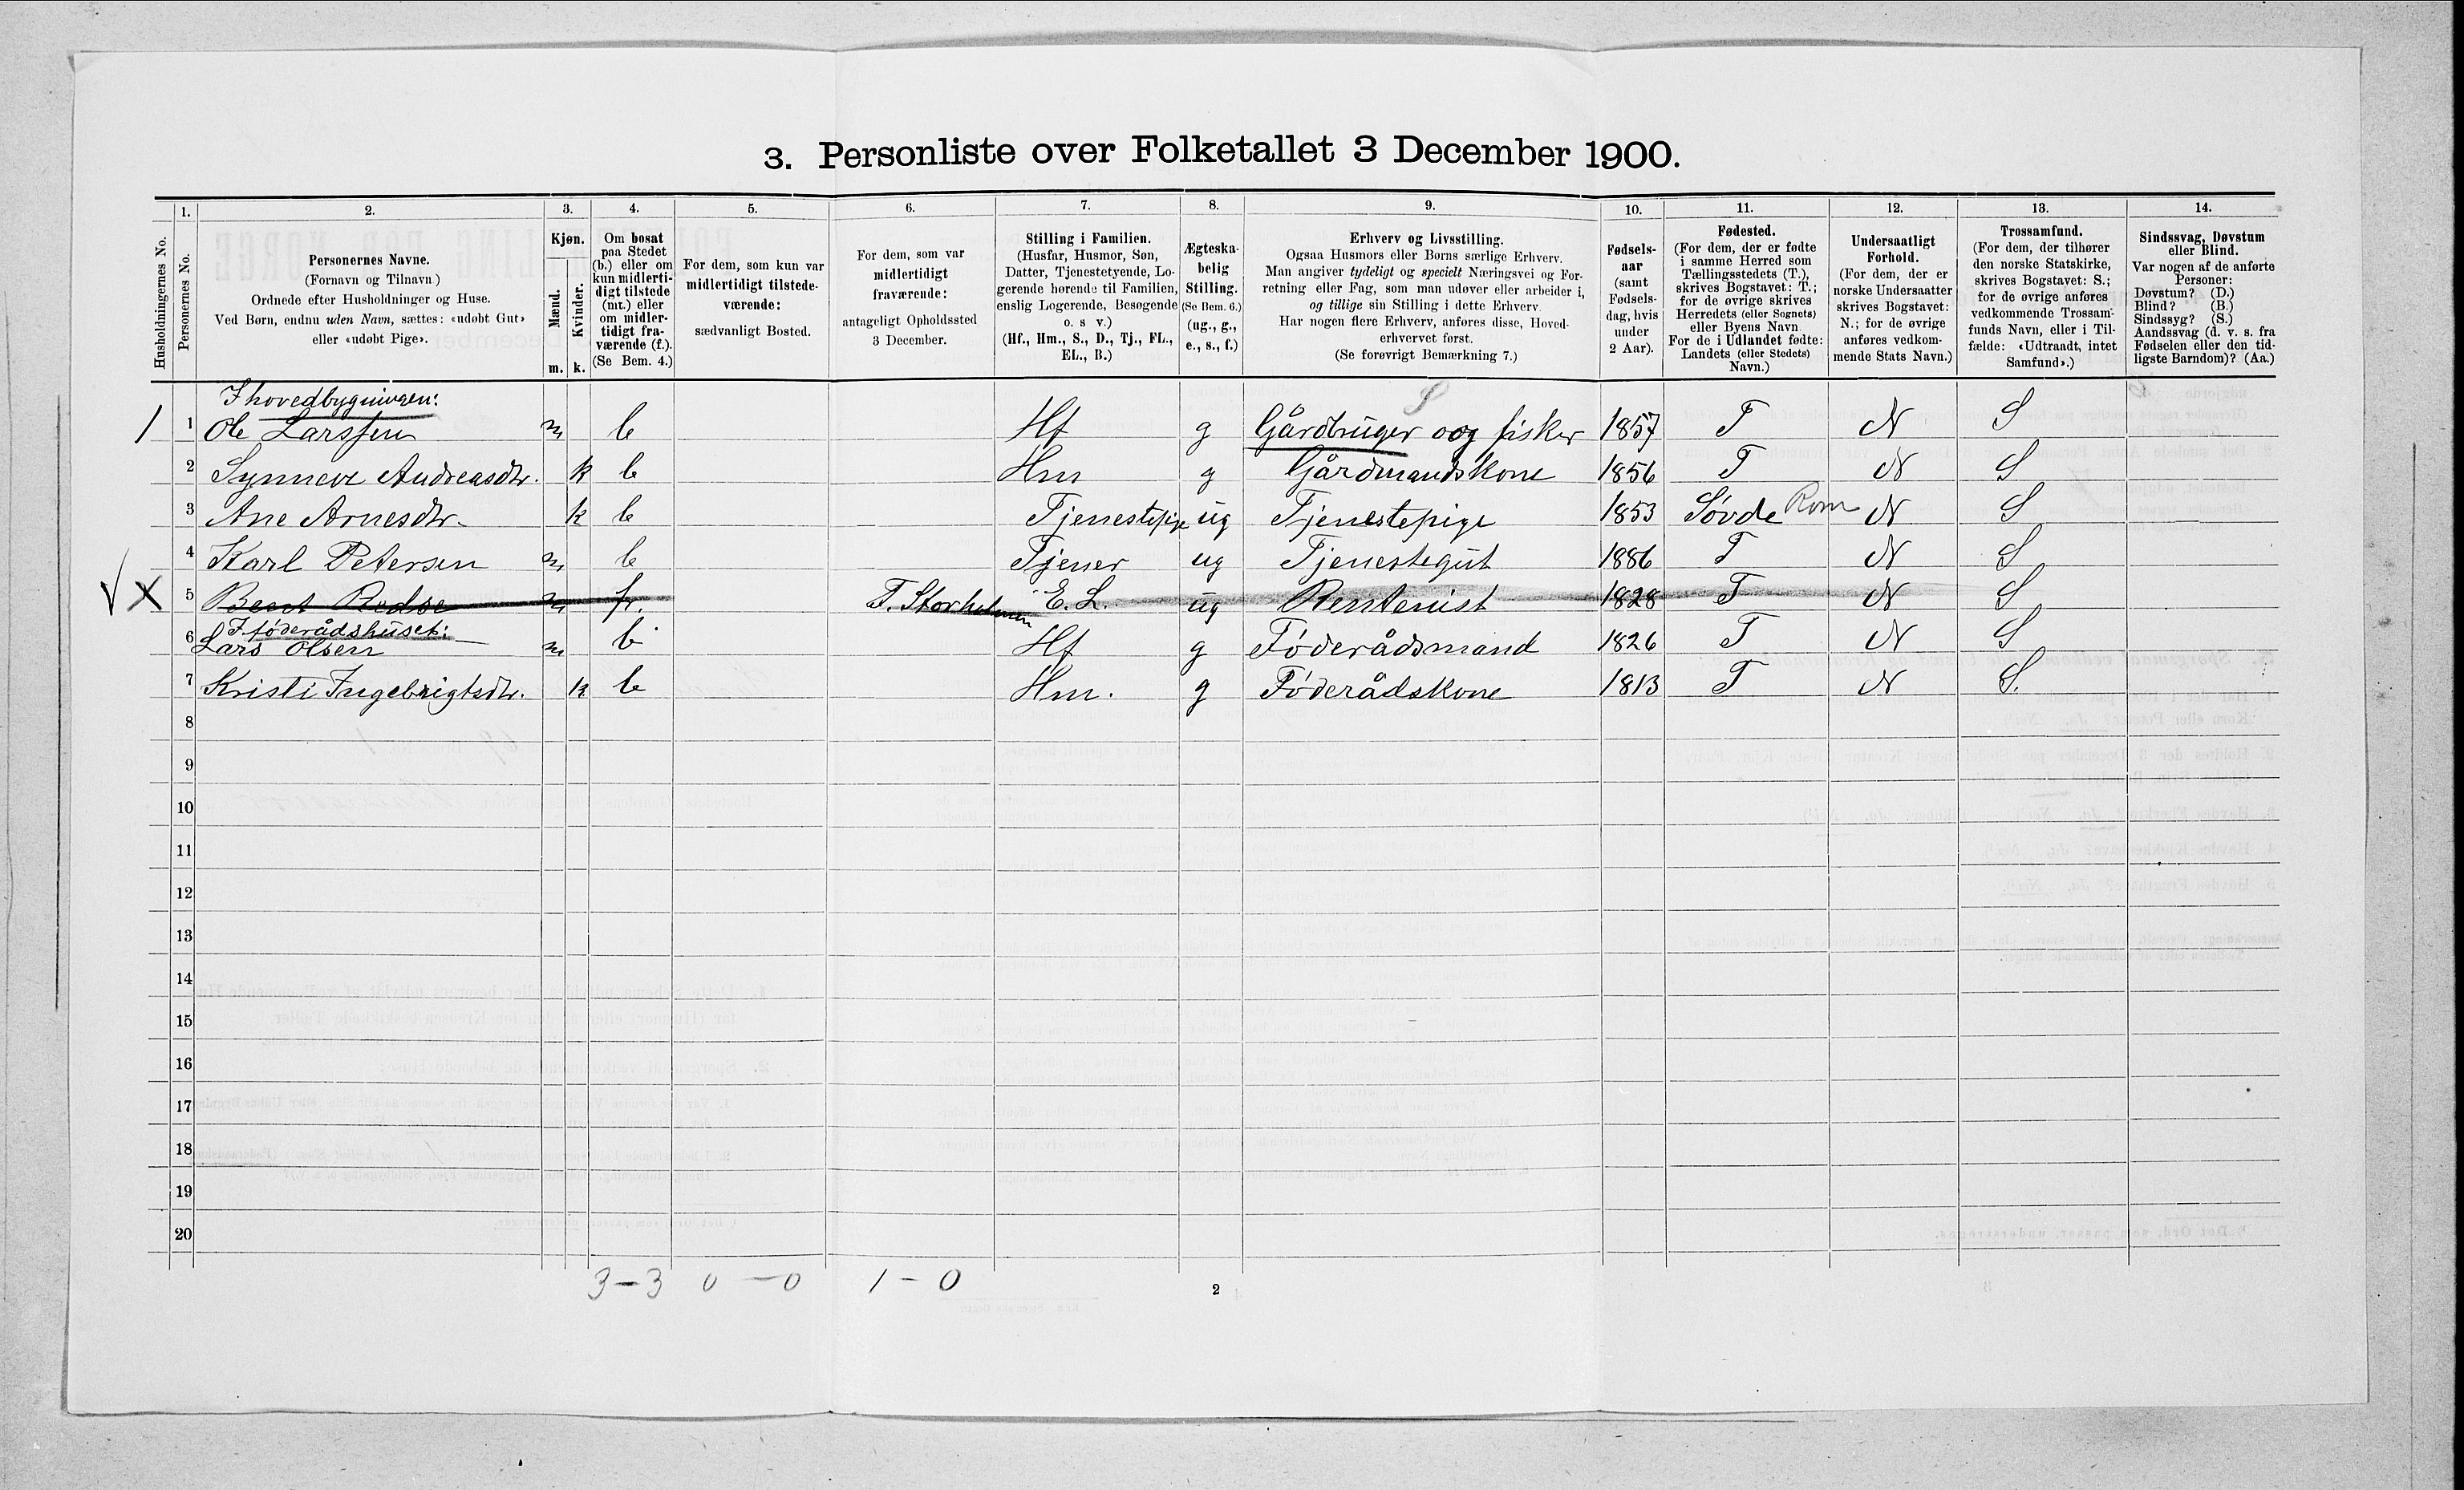 3. Personliste over Folketallet 3 December 1900.
1. 2. 3. 4. 5. 6. 7. 8. 9. 10. 11. 12. 13. 14.
Husholdningernes No.
Personernes No.
Personernes Navne.
(Fornavn og Tilnavn)
Ordnede efter Husholdninger og Huse.
Ved Børn, endnu uden Navn, sættes: «udøbt Gut»
eller «udøbt Pige».
Kjøn.
Mænd.
Kvinder.
m. k.
Om bosat
paa Stedet
(b.) eller om
kun midlerti-
digt tilstede
(mt.) eller
om midler-
tidigt fra-
værende (f.).
(Se Bem. 4.)
For dem, som kun var
midlertidigt tilstede-
værende:
sædvanligt Bosted.
For dem, som var
midlertidigt
fraværende:
antageligt Opholdssted
3 December.
Stilling i Familien.
(Husfar, Husmor, Søn,
Datter, Tjenestetyende, Lo-
gerende hørende til Familien,
enslig Logerende, Besøgende
o. s v.)
(Hf., Hm., S., D., Tj., FL.,
EL., B.)
Ægteska-
belig
Stilling.
(Se Bem. 6.)
(ug., g.,
e., s., f.)
Erhverv og Livsstilling.
Ogsaa Husmors eller Børns særlige Erhverv.
Man angiver tydeligt og specielt Næringsvei og For-
retning eller Fag, som man udøver eller arbeider i,
og tillige sin Stilling i dette Erhverv.
Har nogen flere Erhverv, anføres disse, Hoved-
erhvervet først.
(Se forøvrigt Bemærkning 7.)
Fødsels-
aar
(samt
Fødsels-
dag, hvis
under
2 Aar).
Fødested.
(For dem, der er fødte
i samme Herred som
Tællingsstedets (T.),
skrives Bogstavet: T.;
for de øvrige skrives
Herredets (eller Sognets)
eller Byens Navn
For de i Udlandet fødte:
Landets (eller Stedets)
Navn.)
Undersaatligt
Forhold.
(For dem, der er
norske Undersaatter
skrives Bogstavet:
N.; for de øvrige
anføres vedkom-
mende Stats Navn.)
Trossamfund.
(For dem, der tilhører
den norske Statskirke,
skrives Bogstavet: S.;
for de øvrige anføres
vedkommende Trossam-
funds Navn, eller i Til-
fælde: «Udtraadt, intet
Samfund».)
Sindssvag, Døvstum
eller Blind.
Var nogen af de anførte
Personer:
Døvstum? (D.)
Blind? (B.)
Sindssyg? (S.)
Aandssvag (d. v. s. fra
Fødselen eller den tid-
ligste Barndom)? (Aa.)
I hovedbygningen: S
1 1 Ole Larssen m b Hf g Gårdbruger og fisker 1857 T N S
2 Synneve Andreasdtr. k b Hm g Gårdmandskone 1856 T N S
3 Ane Arnesdtr. k b Tjenestepige ug Tjenestepige 1853 Søvde Rom N S
4 Karl Petersen m b Tjener ug Tjenestegut 1886 T N S
√ X 5 Bernt Redse m fr. T. Storholmen E.L. ug Rentenist 1828 T N S
I føderådshuset:
6 Lars Olsen m b Hf g Føderådsmand 1826 T N S
7 Kristi Ingebrigtsdtr. k b Hm. g Føderådskone 1813 T N S.
8
9
10
11
12
13
14
15
16
17
18
19
20
3 – 3 0 – 0 1 – 0
2